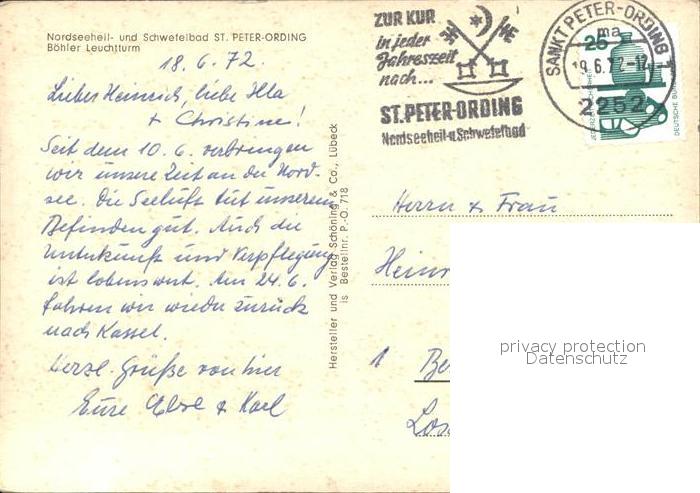 Nordseeheil- und Schwefelbad ST. PETER-ORDING
Böhler Leuchtturm
18.6.72.
Lieber Heinrich, liebe Illa
+ Christine!
Seit dem 10.6. verbringen
wir unsere Zeit an der Nord-
see. Die Seeluft tut unserem
Befinden gut. Auch die
Unterkunft und Verpflegung
ist lobenswert. Am 24.6.
fahren wir wieder zurück
nach Kassel.
Herzl. Grüße von hier
Eure Else + Karl
Hersteller und Verlag Schöning & Co., Lübeck
is Bestellnr. P.-O. 718
ZUR KUR
in jeder
Jahreszeit
nach...
ST. PETER-ORDING
Nordseeheil-u.Schwefelbad
SANKT PETER-ORDING 1
ma
19.6.72-17
2252
25
DEUTSCHE BUN
Herrn + Frau
Hein
1 Be
Los
privacy protection
Datenschutz